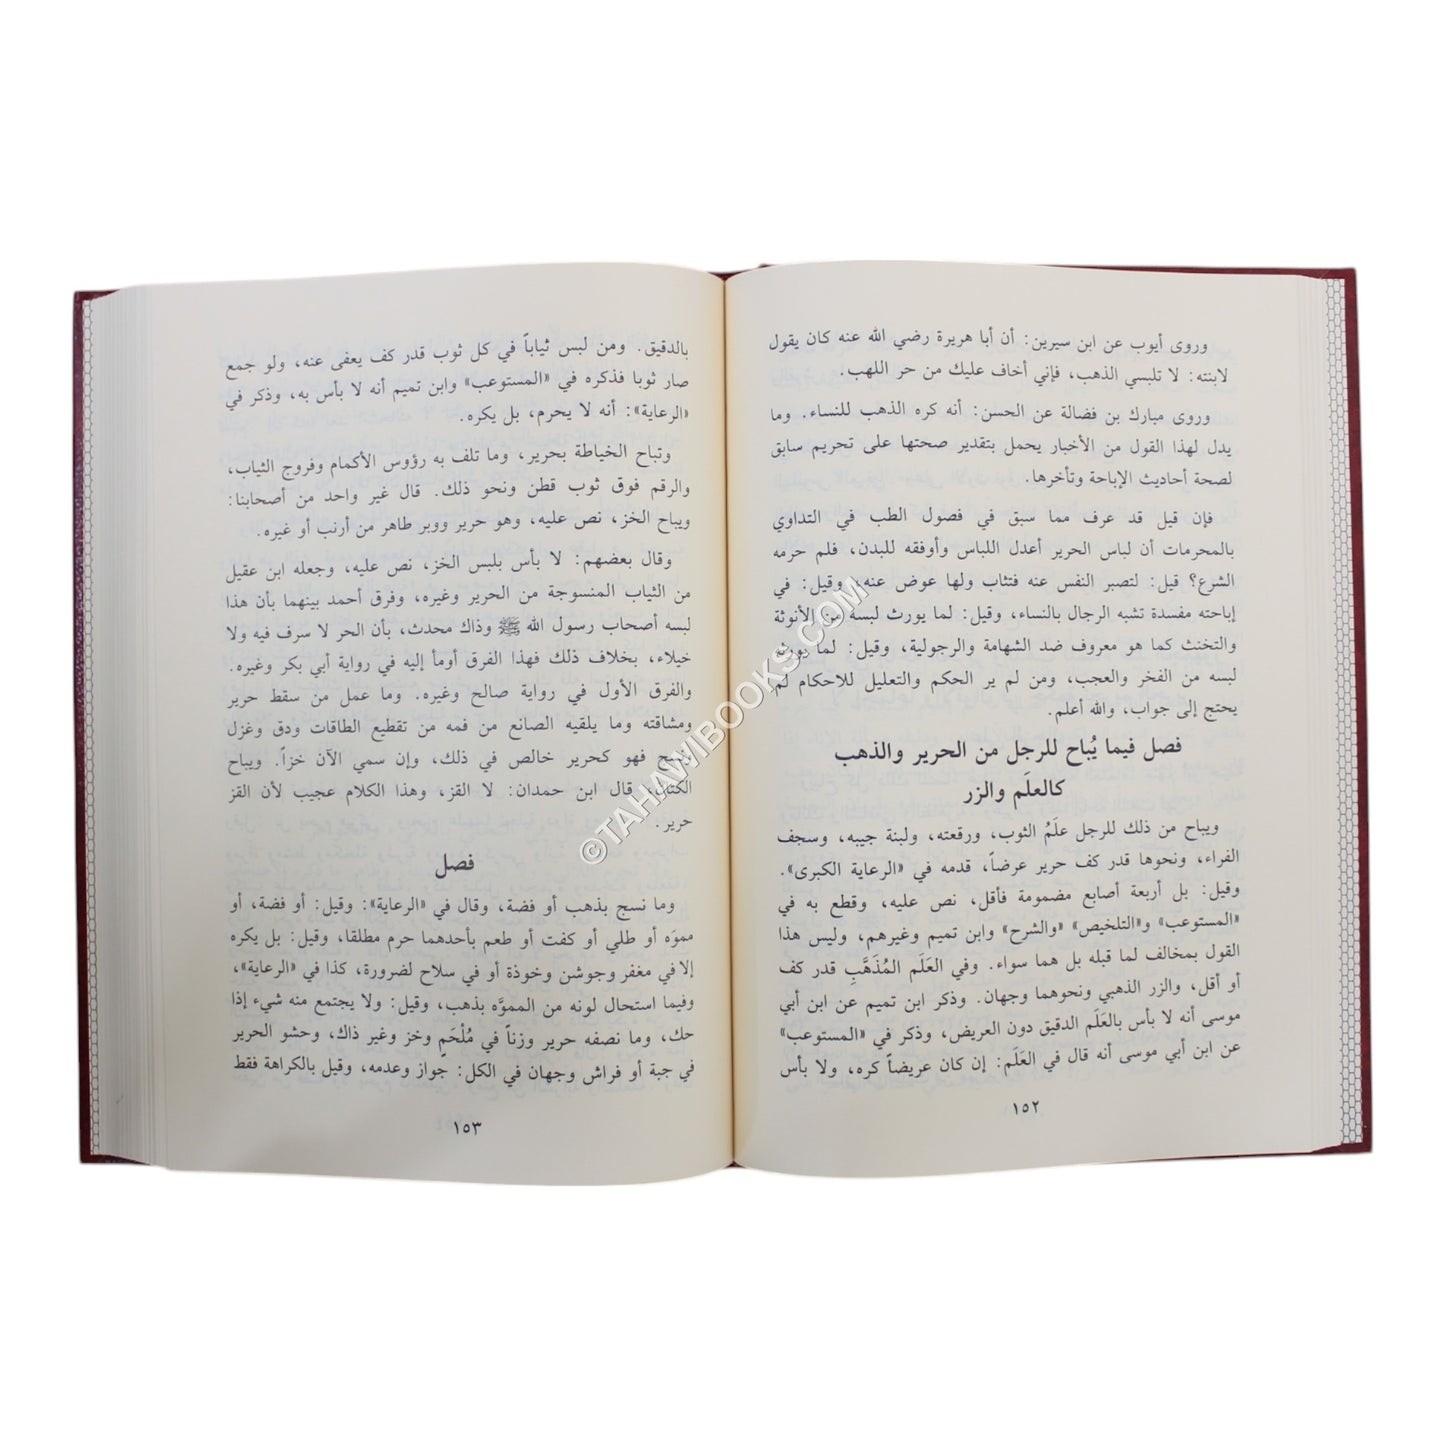 وروى أيوب عن ابن سيرين: أن أبا هريرة رضي الله عنه كان يقول
لابنته: لا تلبسي الذهب، فإني أخاف عليك من حر اللهب.
وروى مبارك بن فضالة عن الحسن: أنه كره الذهب للنساء. وما
يدل لهذا القول من الأخبار يحمل بتقدير صحتها على تحريم سابق
لصحة أحاديث الإباحة وتأخرها.
فإن قيل قد عرف مما سبق في فصول الطب في التداوي
بالمحرمات أن لباس الحرير أعدل اللباس وأوفقه للبدن، فلم حرمه
الشرع؟ قيل: لتصبر النفس عنه فتثاب ولها عوض عنه، وقيل: في
إباحته مفسدة تشبه الرجال بالنساء، وقيل: لما يورث لبسه من الأنوثة
والتخنث كما هو معروف ضد الشهامة والرجولية، وقيل: لما يورثه
لبسه من الفخر والعجب، ومن لم ير الحكم والتعليل للاحكام لم
يحتج إلى جواب، والله أعلم.
فصل فيما يُباح للرجل من الحرير والذهب
كالعلَم والزر
ويباح من ذلك للرجل علَمُ الثوب، ورقعته، ولبنة جيبه، وسجف
الفراء، ونحوها قدر كف حرير عرضاً، قدمه في «الرعاية الكبرى».
وقيل: بل أربعة أصابع مضمومة فأقل، نص عليه، وقطع به في
«المستوعب» و«التلخيص» «والشرح» وابن تميم وغيرهم، وليس هذا
القول بمخالف لما قبله بل هما سواء. وفي العَلَم المُذَهَّبِ قدر كف
أو أقل، والزر الذهبي ونحوهما وجهان. وذكر ابن تميم عن ابن أبي
موسى أنه لا بأس بالعَلَم الدقيق دون العريض، وذكر في «المستوعب»
عن ابن أبي موسى أنه قال في العَلَم: إن كان عريضاً كره، ولا بأس
١٥٢
بالدقيق. ومن لبس ثياباً في كل ثوب قدر كف يعفى عنه، ولو جمع
صار ثوبا فذكره في «المستوعب» وابن تميم أنه لا بأس به، وذكر في
«الرعاية»: أنه لا يحرم، بل يكره.
وتباح الخياطة بحرير، وما تلف به رؤوس الأكمام وفروج الثياب،
والرقم فوق ثوب قطن ونحو ذلك. قال غير واحد من أصحابنا:
ويباح الخز، نص عليه، وهو حرير ووبر طاهر من أرنب أو غيره.
وقال بعضهم: لا بأس بلبس الخز، نص عليه، وجعله ابن عقيل
من الثياب المنسوجة من الحرير وغيره، وفرق أحمد بينهما بأن هذا
لبسه أصحاب رسول الله ﷺ وذاك محدث، بأن الحر لا سرف فيه ولا
خيلاء، بخلاف ذلك فهذا الفرق أومأ إليه في رواية أبي بكر وغيره.
والفرق الأول في رواية صالح وغيره. وما عمل من سقط حرير
ومشاقته وما يلقيه الصانع من فمه من تقطيع الطاقات ودق وغزل
ونسج فهو كحرير خالص في ذلك، وإن سمي الآن خزاً. ويباح
الكتان، قال ابن حمدان: لا القز، وهذا الكلام عجيب لأن القز
حرير.
فصل
وما نسج بذهب أو فضة، وقال في «الرعاية»: وقيل: أو فضة، أو
مموَه أو طلي أو كفت أو طعم بأحدهما حرم مطلقا، وقيل: بل يكره
إلا في مغفر وجوشن وخوذة أو في سلاح لضرورة، كذا في «الرعاية»،
وفيما استحال لونه من المموَّه بذهب، وقيل: ولا يجتمع منه شيء إذا
حك، وما نصفه حرير وزناً في مُلْحَمٍ وخز وغير ذاك، وحشو الحرير
في جبة أو فراش وجهان في الكل: جواز وعدمه، وقيل بالكراهة فقط
١٥٣
©TAHAWIBOOKS.COM